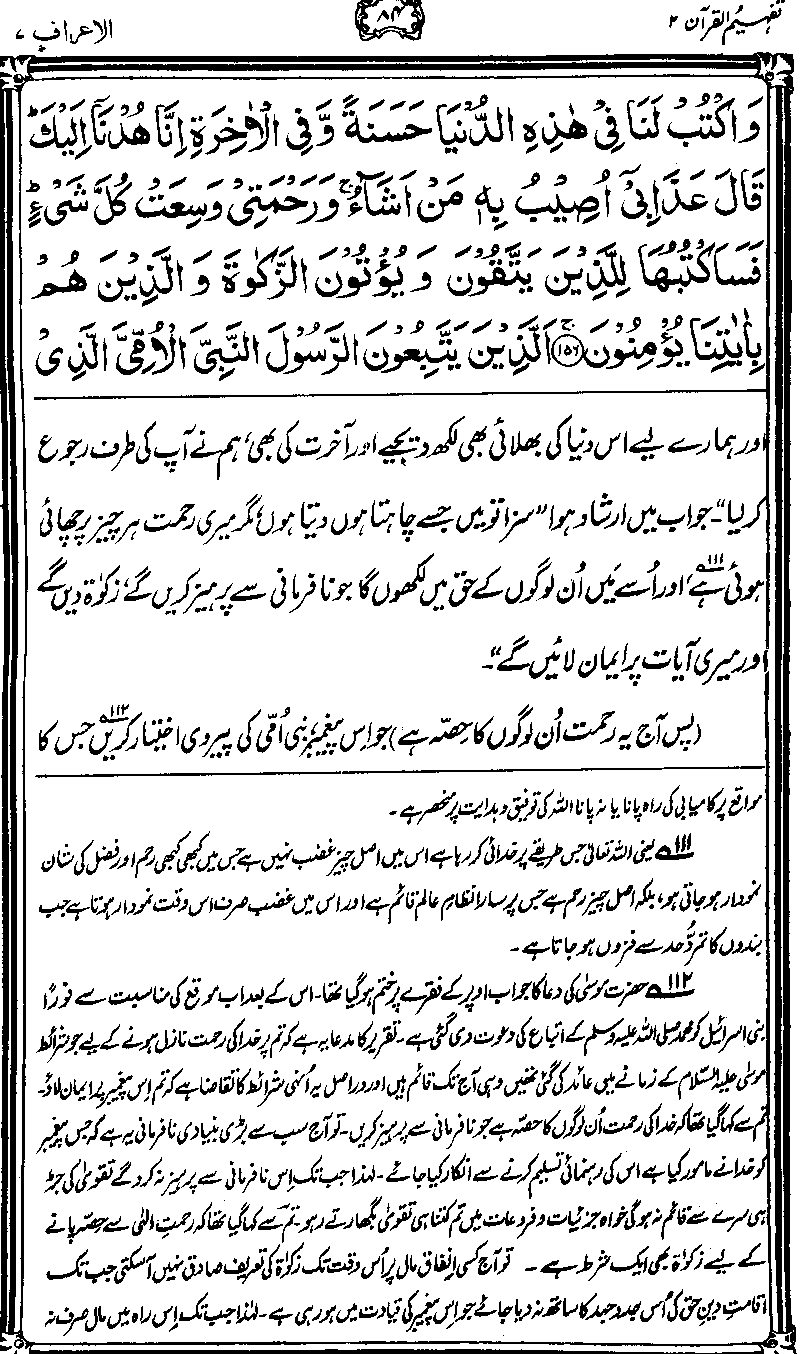 تفہیم القرآن ۲
۸۴
الاعراف ۷
وَ اكْتُبْ لَنَا فِیْ هٰذِهِ الدُّنْیَا حَسَنَةً وَّ فِی الْاٰخِرَةِ اِنَّا هُدْنَاۤ اِلَیْكَ ؕ
قَالَ عَذَابِیْۤ اُصِیْبُ بِهٖ مَنْ اَشَآءُ ۚ وَ رَحْمَتِیْ وَسِعَتْ كُلَّ شَیْءٍ ؕ
فَسَاَكْتُبُهَا لِلَّذِیْنَ یَتَّقُوْنَ وَ یُؤْتُوْنَ الزَّكٰوةَ وَ الَّذِیْنَ هُمْ
بِاٰیٰتِنَا یُؤْمِنُوْنَ ۚ ﴿۱۵۶﴾ اَلَّذِیْنَ یَتَّبِعُوْنَ الرَّسُوْلَ النَّبِیَّ الْاُمِّیَّ الَّذِیْ
اور ہمارے لیے اس دنیا کی بھلائی بھی لکھ دیجیے اور آخرت کی بھی، ہم نے آپ کی طرف رجوع
کر لیا“۔ جواب میں ارشاد ہوا ”سزا تو میں جسے چاہتا ہوں دیتا ہوں، مگر میری رحمت ہر چیز پر چھائی
ہوئی ہے۱۱۱، اور اُسے میں اُن لوگوں کے حق میں لکھوں گا جو نافرمانی سے پرہیز کریں گے، زکوٰۃ دیں گے
اور میری آیات پر ایمان لائیں گے“۔
(پس آج یہ رحمت اُن لوگوں کا حصّہ ہے) جو اِس پیغمبر، نبی اُمّی کی پیروی اختیار کریں۱۱۲ جس کا
مواقع پر کامیابی کی راہ پانا یا نہ پانا اللہ کی توفیق و ہدایت پر منحصر ہے۔
۱۱۱ یعنی اللہ تعالیٰ جس طریقے پر خدائی کر رہا ہے اس میں اصل چیز غضب نہیں ہے جس میں کبھی کبھی رحم اور فضل کی شان
نمودار ہو جاتی ہو، بلکہ اصل چیز رحم ہے جس پر سارا نظامِ عالم قائم ہے اور اس میں غضب صرف اس وقت نمودار ہوتا ہے جب
بندوں کا تمرُّد حد سے فزوں ہو جاتا ہے۔
۱۱۲ حضرت موسیٰ کی دعا کا جواب اوپر کے فقرے پر ختم ہو گیا تھا۔ اس کے بعد اب موقع کی مناسبت سے فورًا
بنی اسرائیل کو محمد صلی اللہ علیہ وسلم کے اتباع کی دعوت دی گئی ہے۔ تقریر کا مدعا یہ ہے کہ تم پر خدا کی رحمت نازل ہونے کے لیے جو شرائط
موسیٰ علیہ السّلام کے زمانے میں عائد کی گئی تھیں وہی آج تک قائم ہیں اور دراصل یہ اُنہی شرائط کا تقاضا ہے کہ تم اِس پیغمبر پر ایمان لاؤ۔
تم سے کہا گیا تھا کہ خدا کی رحمت اُن لوگوں کا حصّہ ہے جو نافرمانی سے پرہیز کریں۔ تو آج سب سے بڑی بنیادی نافرمانی یہ ہے کہ جس پیغمبر
کو خدا نے مامور کیا ہے اس کی رہنمائی تسلیم کرنے سے انکار کیا جائے۔ لہٰذا جب تک اِس نافرمانی سے پرہیز نہ کرو گے تقویٰ کی جڑ
ہی سرے سے قائم نہ ہو گی خواہ جزئیات و فروعات میں تم کتنا ہی تقویٰ بگھارتے رہو۔ تم سے کہا گیا تھا کہ رحمتِ الٰہی سے حصّہ پانے
کے لیے زکوٰۃ بھی ایک شرط ہے۔ تو آج کسی اِنفاقِ مال پر اُس وقت تک زکوٰۃ کی تعریف صادق نہیں آ سکتی جب تک
اقامتِ دینِ حق کی اُس جدوجہد کا ساتھ نہ دیا جائے جو اِس پیغمبر کی قیادت میں ہو رہی ہے۔ لہٰذا جب تک اِس راہ میں مال صرف نہ